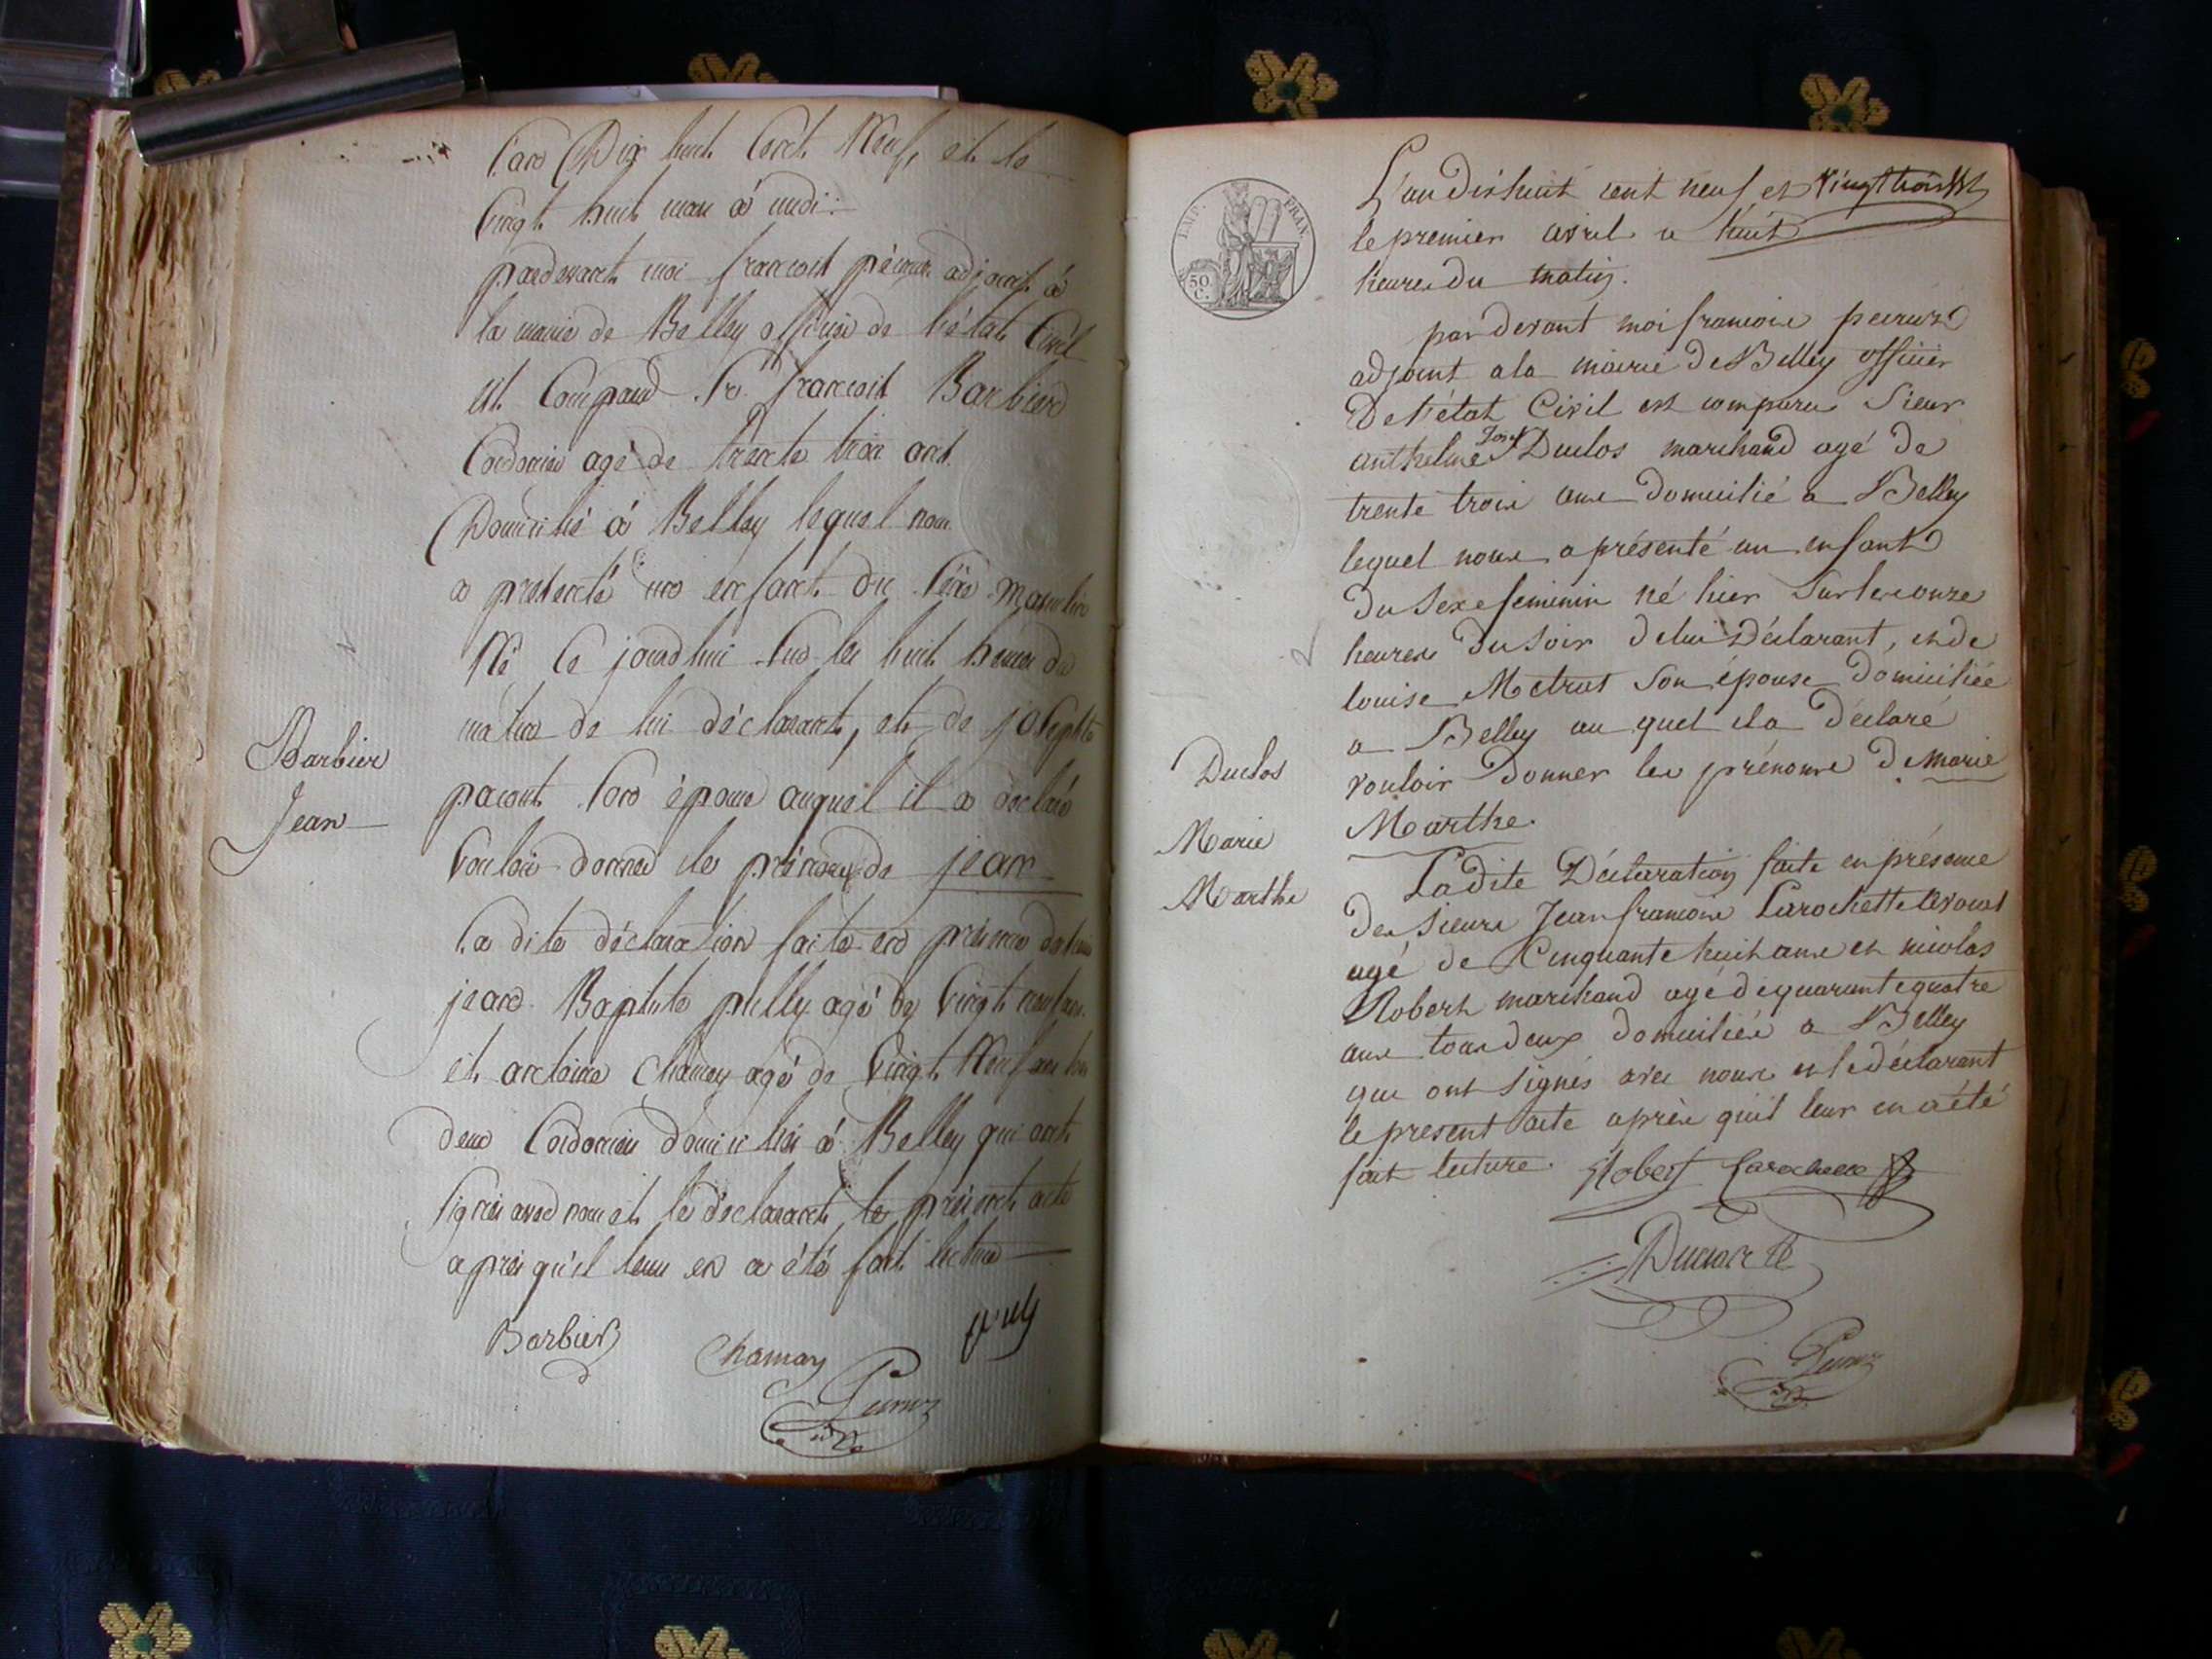 L'an Dix huit Cent Neuf et le
vingt huit mars à midi
pardevant moi francois péruz adjoint à
la mairie de Belley officier de l'état Civil
est Comparu Sr. francois Barbier
Cordonnier agé de trente trois ans
Domicilié à Belley lequel nous
a presenté un enfant du sexe masculin
Né Ce jourd'hui sur les huit heures du
matin de lui déclarant, et de josephte
son épouse auquel il a déclaré
vouloir donner le prénom de jean
La dite déclaration faite en présence de
jean Baptiste agé de vingt neuf ans
et antoine Chamay agé de vingt Neuf ans tous
deux Cordonniers domiciliés à Belley qui ont
signés avec nous et le déclarant le présent acte
après qu'il leur en a été fait lecture
Barbier
Chamay
Peruz
Barbier
Jean
IMP. FRAN.
50 C.
L'an dishuit cent neuf et
le premier avril a huit
heures du matin.
par devant moi francois peruz
adjoint a la mairie de Belley officier
De l'état Civil est comparu Sieur
anthelme Josef Duclos marchand agé de
trente trois ans domicilié a Belley
lequel nous a présenté un enfant
du Sexe feminin né hier sur les onze
heures du soir de lui Déclarant, et de
louise Metrat son épouse domiciliée
a Belley au quel il a déclaré
vouloir donner les prénoms de Marie
Marthe.
La dite Déclaration faite en présence
des sieurs Jean francois Larochette avocat
agé de Cinquante huit ans et nicolas
Robert marchand agé de quarante quatre
ans tous deux domiciliés a Belley
qui ont signés avec nous et le déclarant
le present acte après quil leur en a été
fait lecture. Robert Larochette
Peruz
Duclos
Marie
Marthe